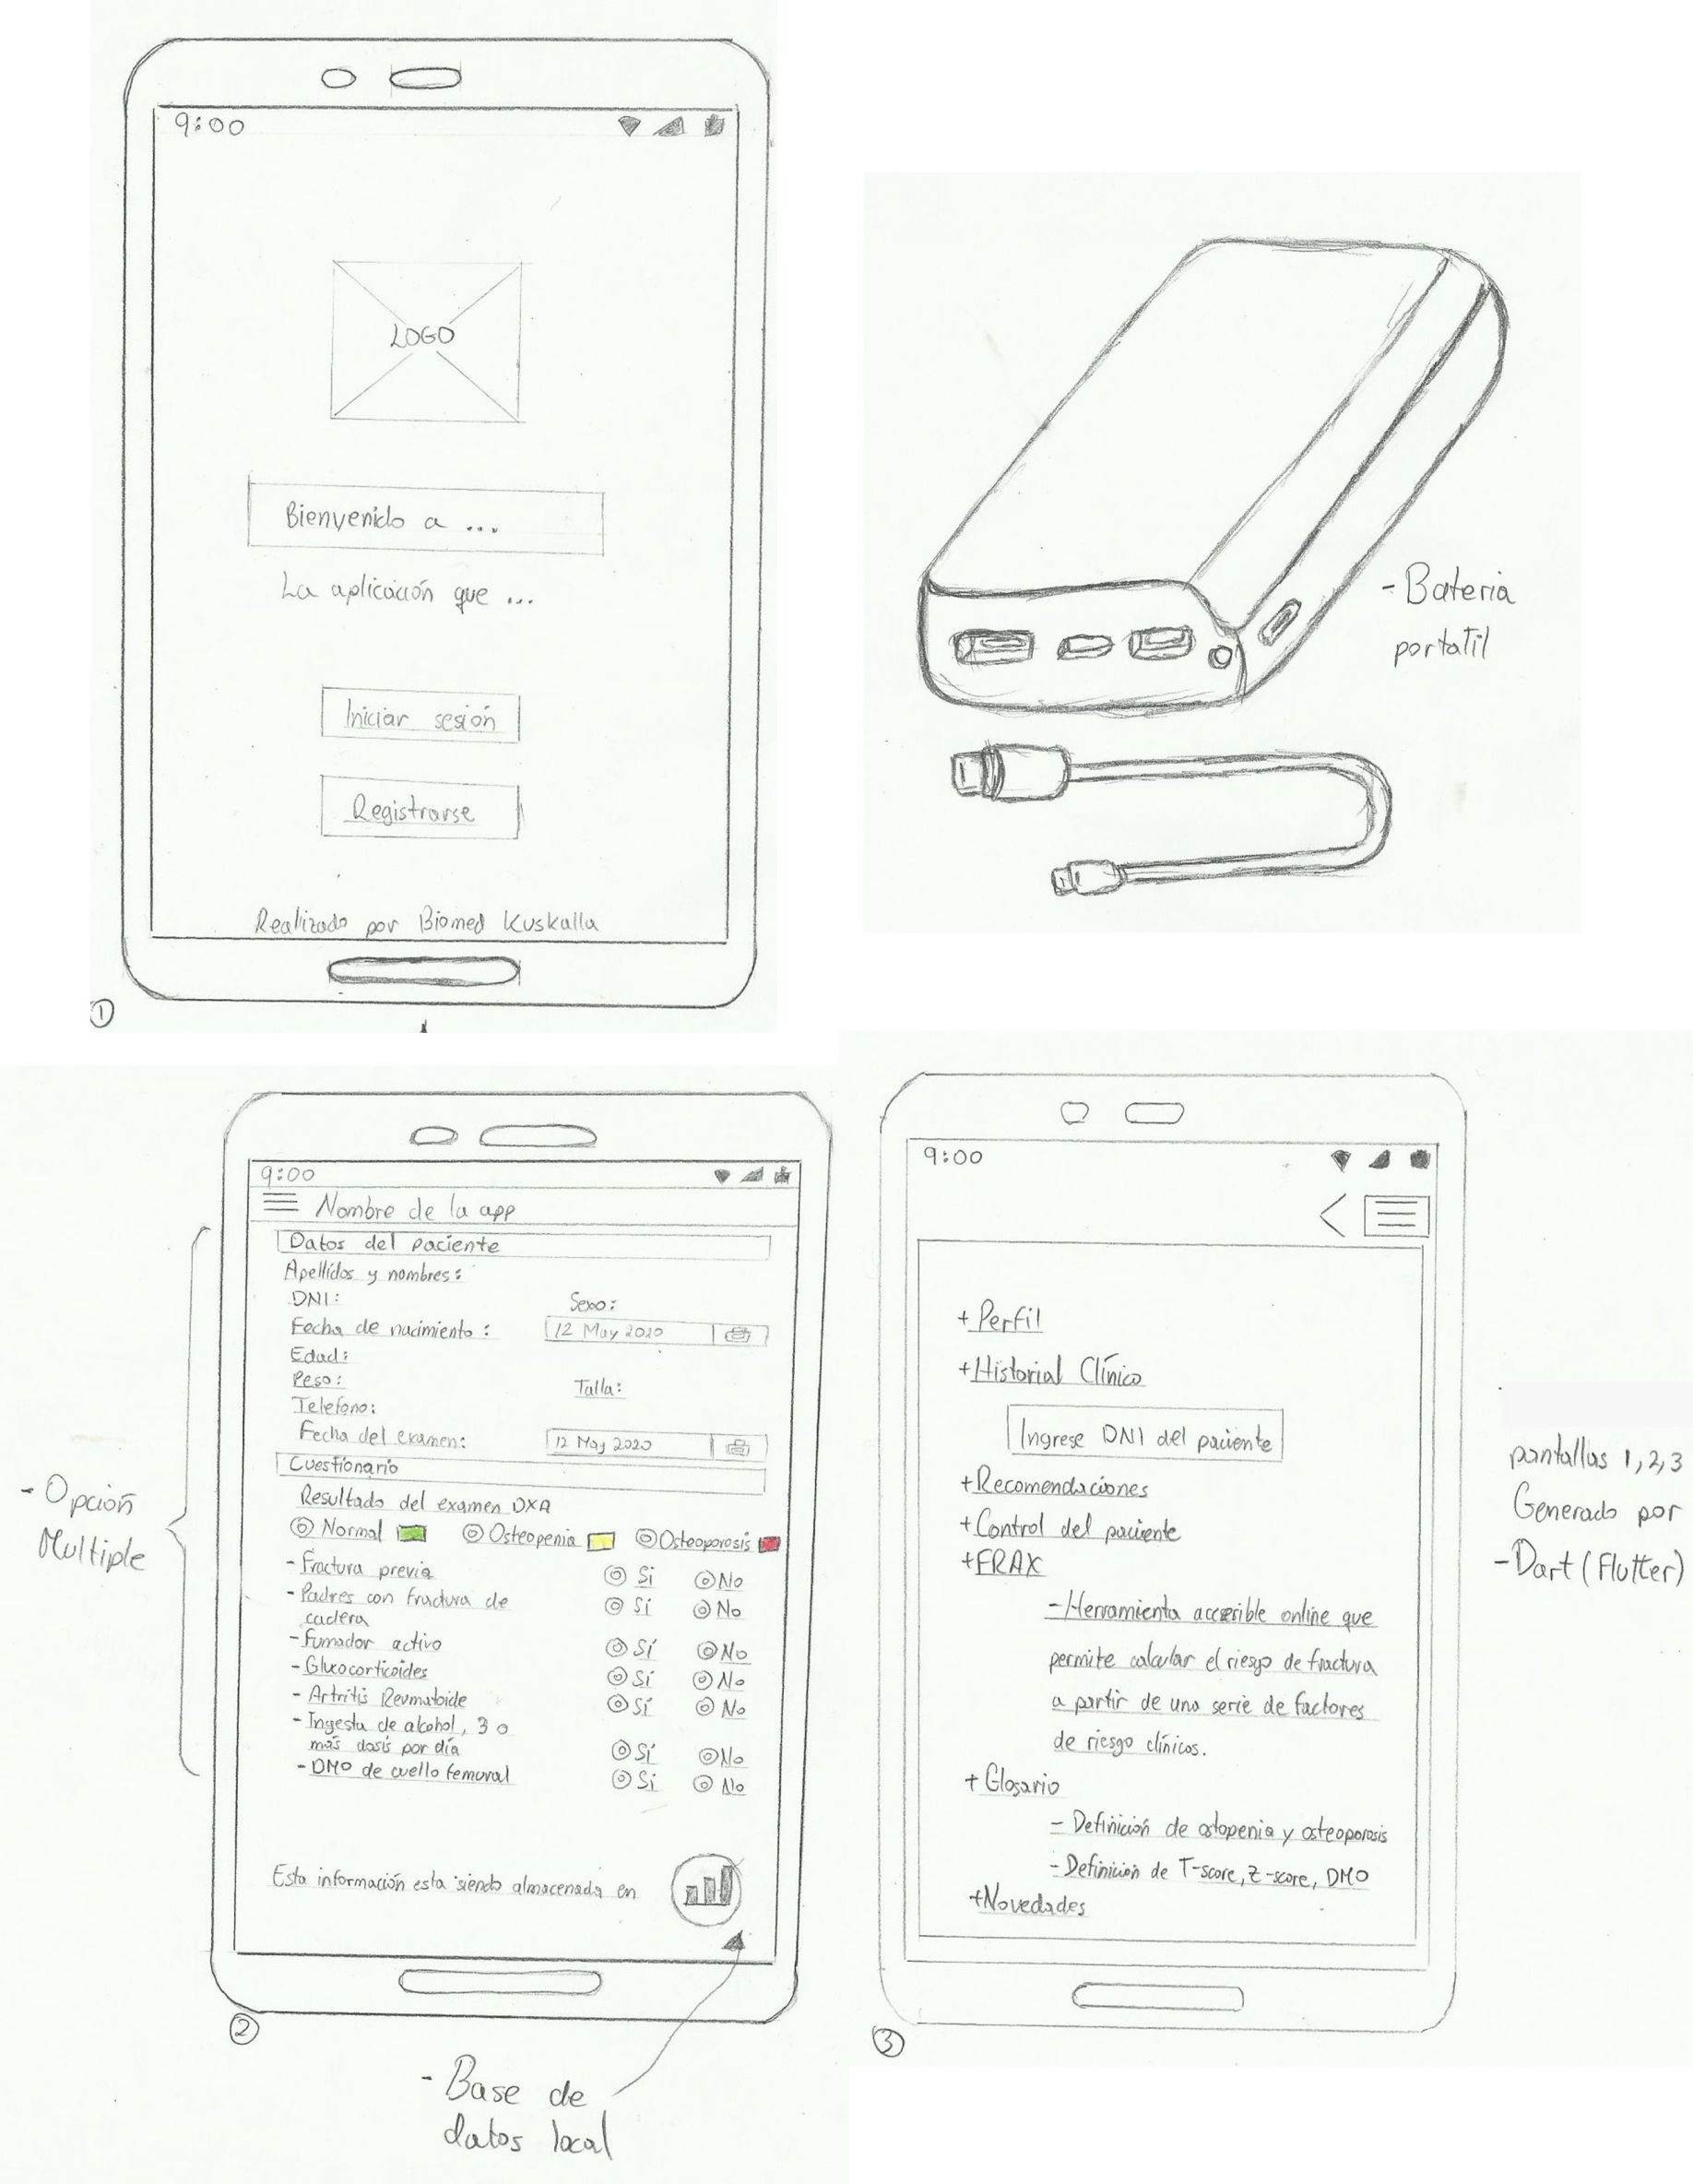 9:00
LOGO
Bienvenido a ...
La aplicación que ...
Iniciar sesión
Registrarse
Realizado por Biomed Kuskalla
1
- Bateria
portatil
9:00
Nombre de la app
Datos del paciente
Apellidos y nombres:
DNI:
Sexo:
Fecha de nacimiento :
12 May 2020
Edad:
Peso:
Talla:
Telefono:
Fecha del examen:
12 May 2020
Cuestionario
Resultado del examen DXA
Normal
Osteopenia
Osteoporosis
- Fractura previa
Si
No
- Padres con fractura de
cadera
Sí
No
- Fumador activo
Sí
No
- Glucocorticoides
Sí
No
- Artritis Reumatoide
Sí
No
- Ingesta de alcohol, 3 o
más dosis por día
Sí
No
- DMO de cuello femoral
Si
No
Esta información esta siendo almacenada en
2
- Opción
Multiple
- Base de
datos local
9:00
+ Perfil
+ Historial Clínico
Ingrese DNI del paciente
+ Recomendaciones
+ Control del paciente
+ FRAX
- Herramienta accesible online que
permite calcular el riesgo de fractura
a partir de una serie de factores
de riesgo clínicos.
+ Glosario
- Definición de ostopenia y osteoporosis
- Definición de T-score, Z-score, DMO
+ Novedades
3
pantallas 1,2,3
Generado por
- Dart (Flutter)